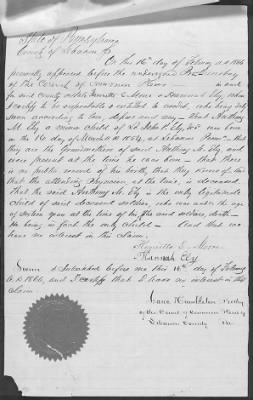 State of Pennsylvania
County of Lebanon SS
On this 16th day of February A.D. 1866
personally appeared before the undersigned Prothonotary
of the Court of Common Pleas in and
for said county Henrietta E. Moore & Hannah Ely, whom
I certify to be respectable & entitled to credit, who being duly
sworn according to law, depose and say - that Anthony
M. Ely a minor child of Lt. John P. Ely, was born
on the 10 day of 1854, at Lebanon Penna - that
they are the Grandmothers of said Anthony M. Ely and
were present at the time he was born - that there
is no public record of his birth, that they
that the attending Physician at the time, is deceased
That the said Anthony M. Ely is the only legitimate
Child of said deceased soldier, who was under the age
of sixteen years at the time of his said soldiers, death -
He being in fact the only child - And that we
have no interest in this claim,
Henrietta E. Moore
Hannah Ely
Sworn & Subscribed before me this 16th day of February
A.D. 1866, and I certify that I have no interest in this
claim
Isaac Hambleton Prothy
of the Court of Common Pleas of
Lebanon County Pa.